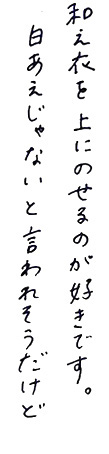 和え衣を上にのせるのが好きです。
白あえじゃないと言われそうだけど